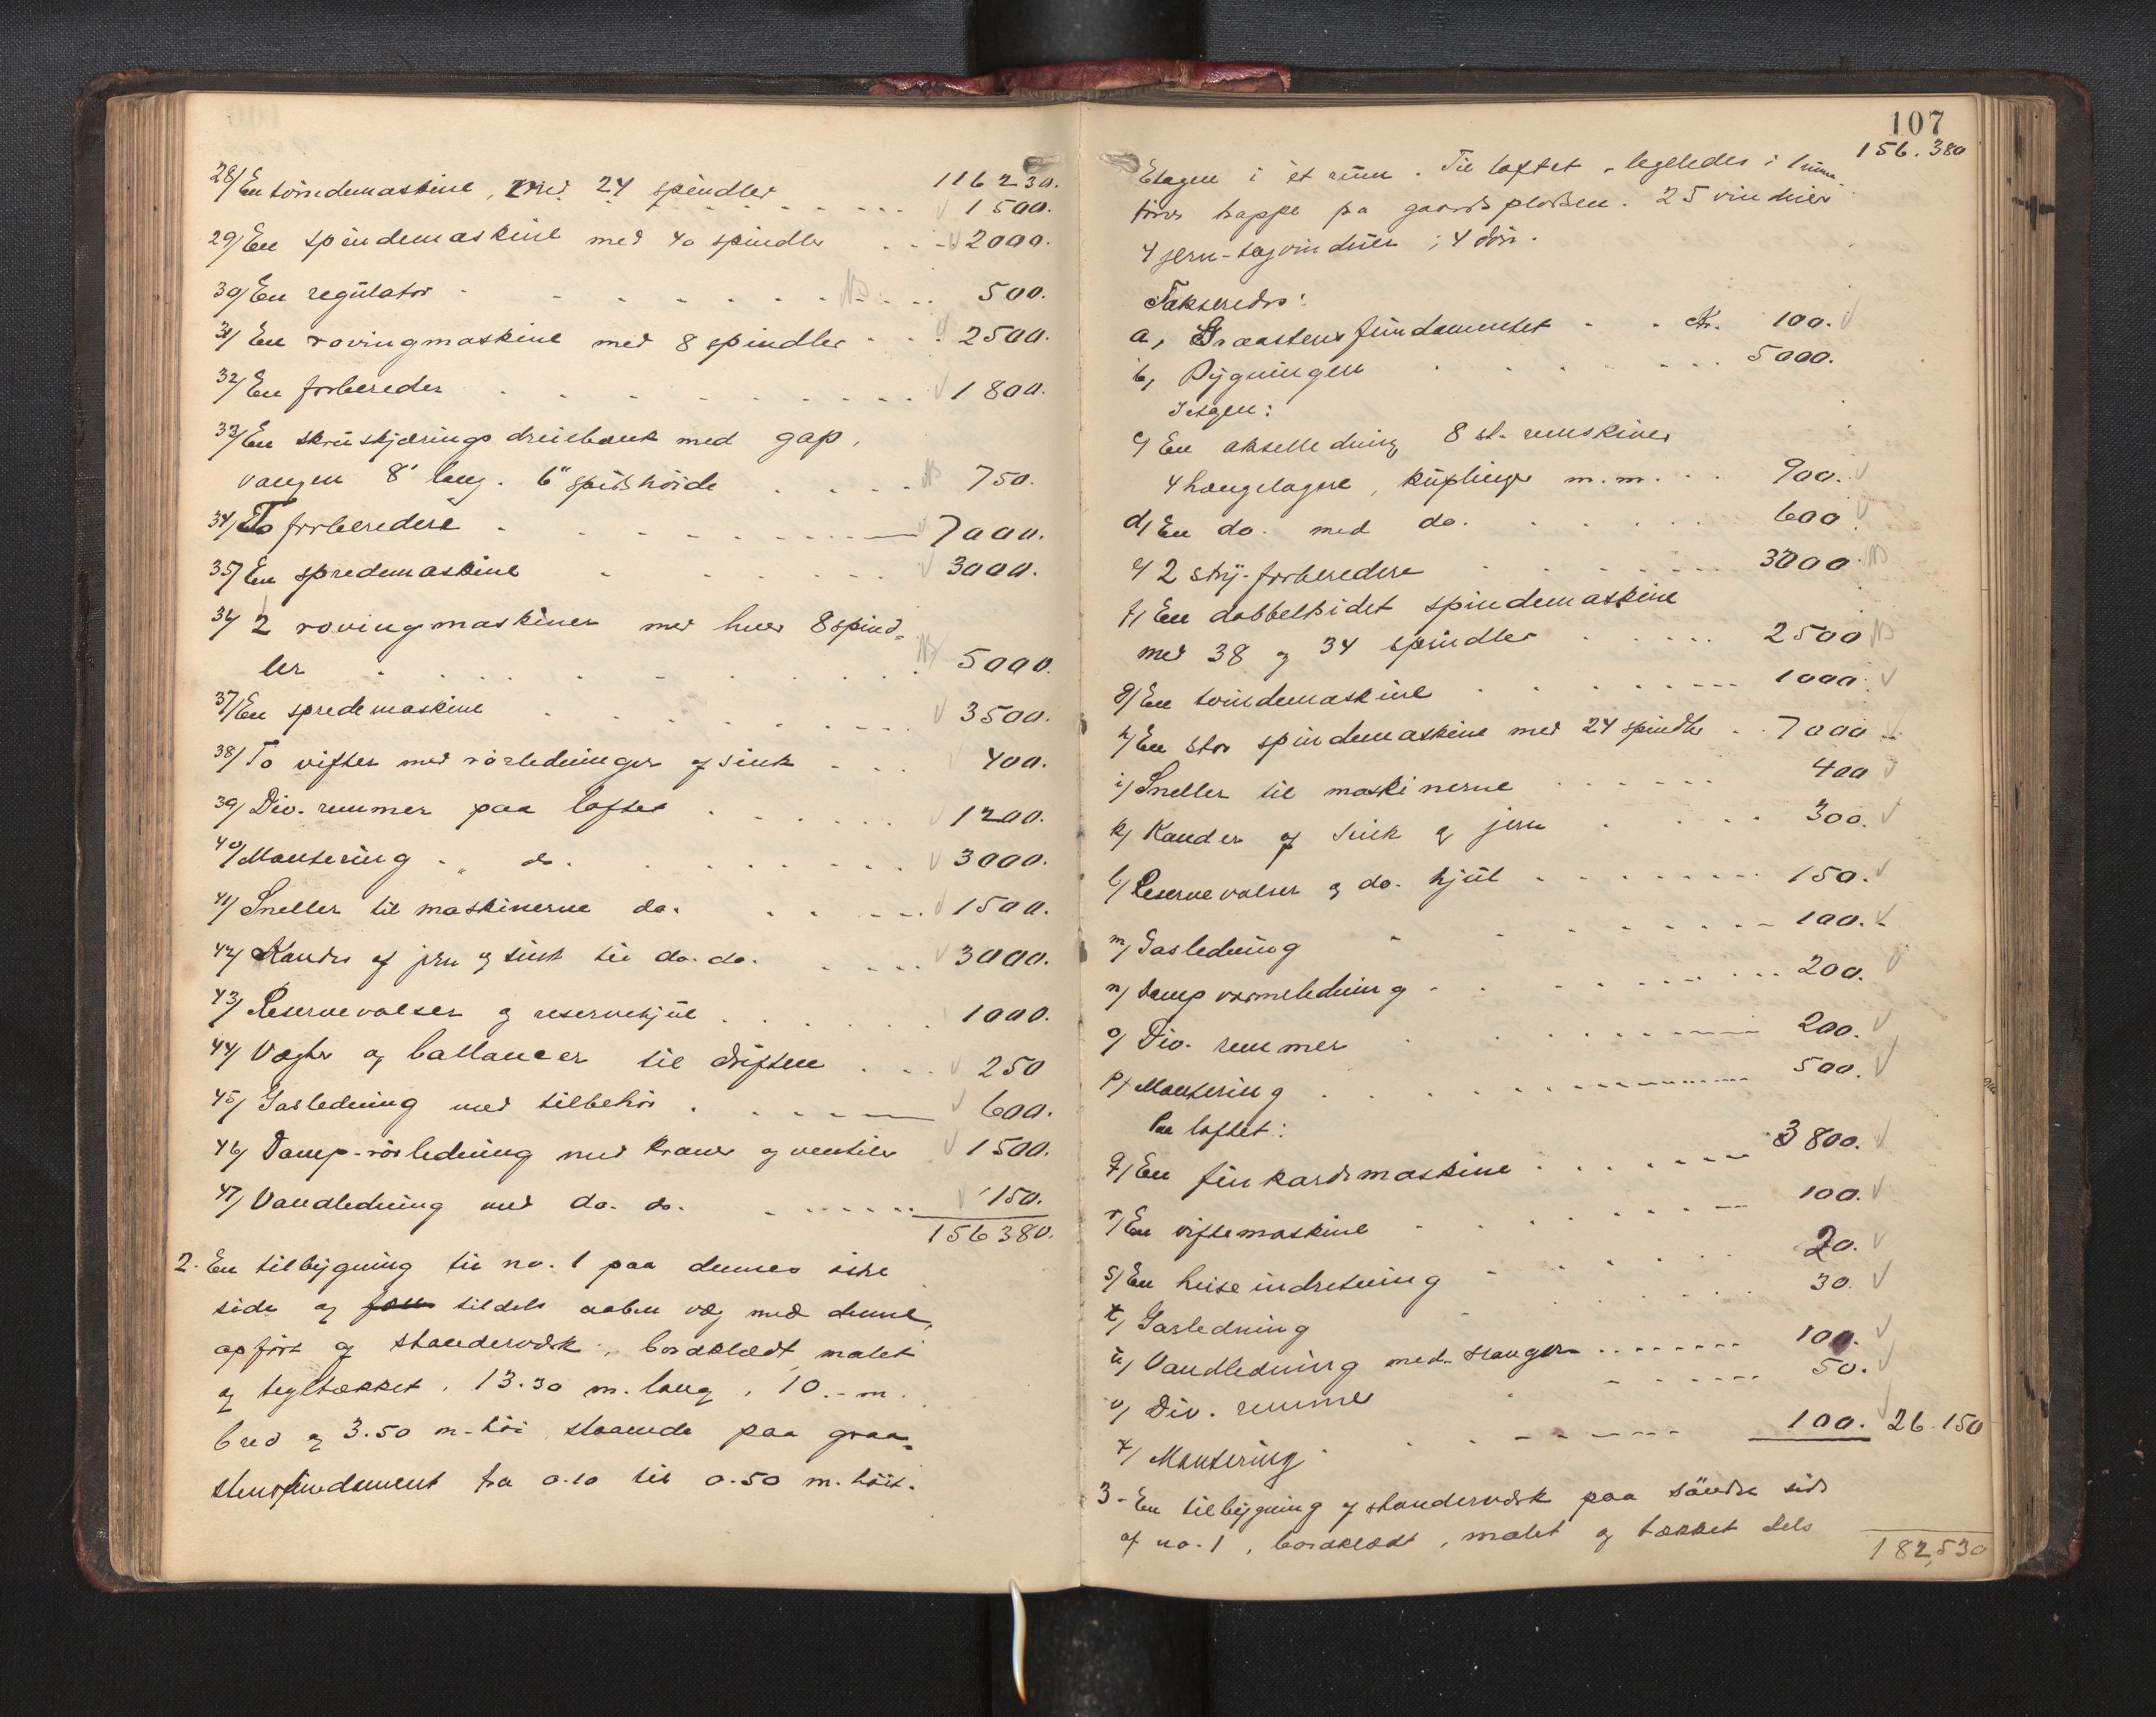 116230.
28/ En tvindemaskine, med 24 spindler 1500.
29/ En spindemaskine med 40 spindler 2000.
30/ En regulator 500.
31/ En rovingmaskine med 8 spindler 2500.
32/ En forbereder 1800.
33/ En skrüskjærings dreiebænk med gap,
vangen 8' lang. 6" spidshöide 750.
34/ To forberedere 7000.
35/ En spredemaskine 3000.
36/ 2 rovingmaskiner med hver 8 spind-
ler 5000.
37/ En spredemaskine 3500.
38/ To vifter med rörledninger af sink 400.
39/ Div. remmer paa loftet 1200.
40/ Montering " do. 3000.
41/ Sneller til maskinerne do. 1500.
42/ Kander af jern og sink til do. do. 3000.
43/ Reservevalser og reservehjül 1000.
44/ Vægter og ballancer til driften 250
45/ Gasledning med tilbehör 600.
46/ Damp-rörledning med kraner og ventiler 1500.
47/ Vandledning med do. do. 150.
156380.
2. En tilbygning til no. 1 paa dennes östre
side og tildels aaben væg med denne,
opfört af standerværk, bordklædt malet
og tegltækket, 13.30 m. lang, 10.- m.
bred og 3.50 m. höi, staaende paa graa-
stensfundament fra 0.10 til 0.50 m. höit.
107
156.380
Etagen i et rüm. Til loftet, ligeledes i 1 rüm
förer trappe fra gaardspladsen. 25 vindüer
4 jern-tagvindüer; 4 dör.
Takseredes:
a, Graastensfündamentet Kr. 100.
b, Bygningen 5000.
I etagen:
c/ En akselledning 8 st. remskiver
4 hængelagere, küplinger m.m. 900.
d/ En do. med do. 600.
e/ 2 stry-forberedere 3000.
f/ En dobbeltsidet spindemaskine
med 38 og 34 spindler 2500
g/ En tvindemaskine 1000.
h/ En stor spindemaskine med 24 spindler 7000
i/ Sneller til maskinerne 400
k/ Kander af sink og jern 300.
l/ Reservevalser og do. hjül 150.
m/ Gasledning 100.
n/ Damp varmeledning 200.
o/ Div. remmer 200.
p/ Montering 500.
Paa loftet:
q/ En finkardemaskine 3800.
r/ En viftemaskine 100.
s/ En heiseindretning 20.
t/ Gasledning 30.
ü/ Vandledning med slanger 100.
v/ Div. remme 50.
x/ Montering 100. 26.150
3- En tilbygning af standerværk paa söndre side
af no. 1, bordklædt, malet og tækket dels
182,530